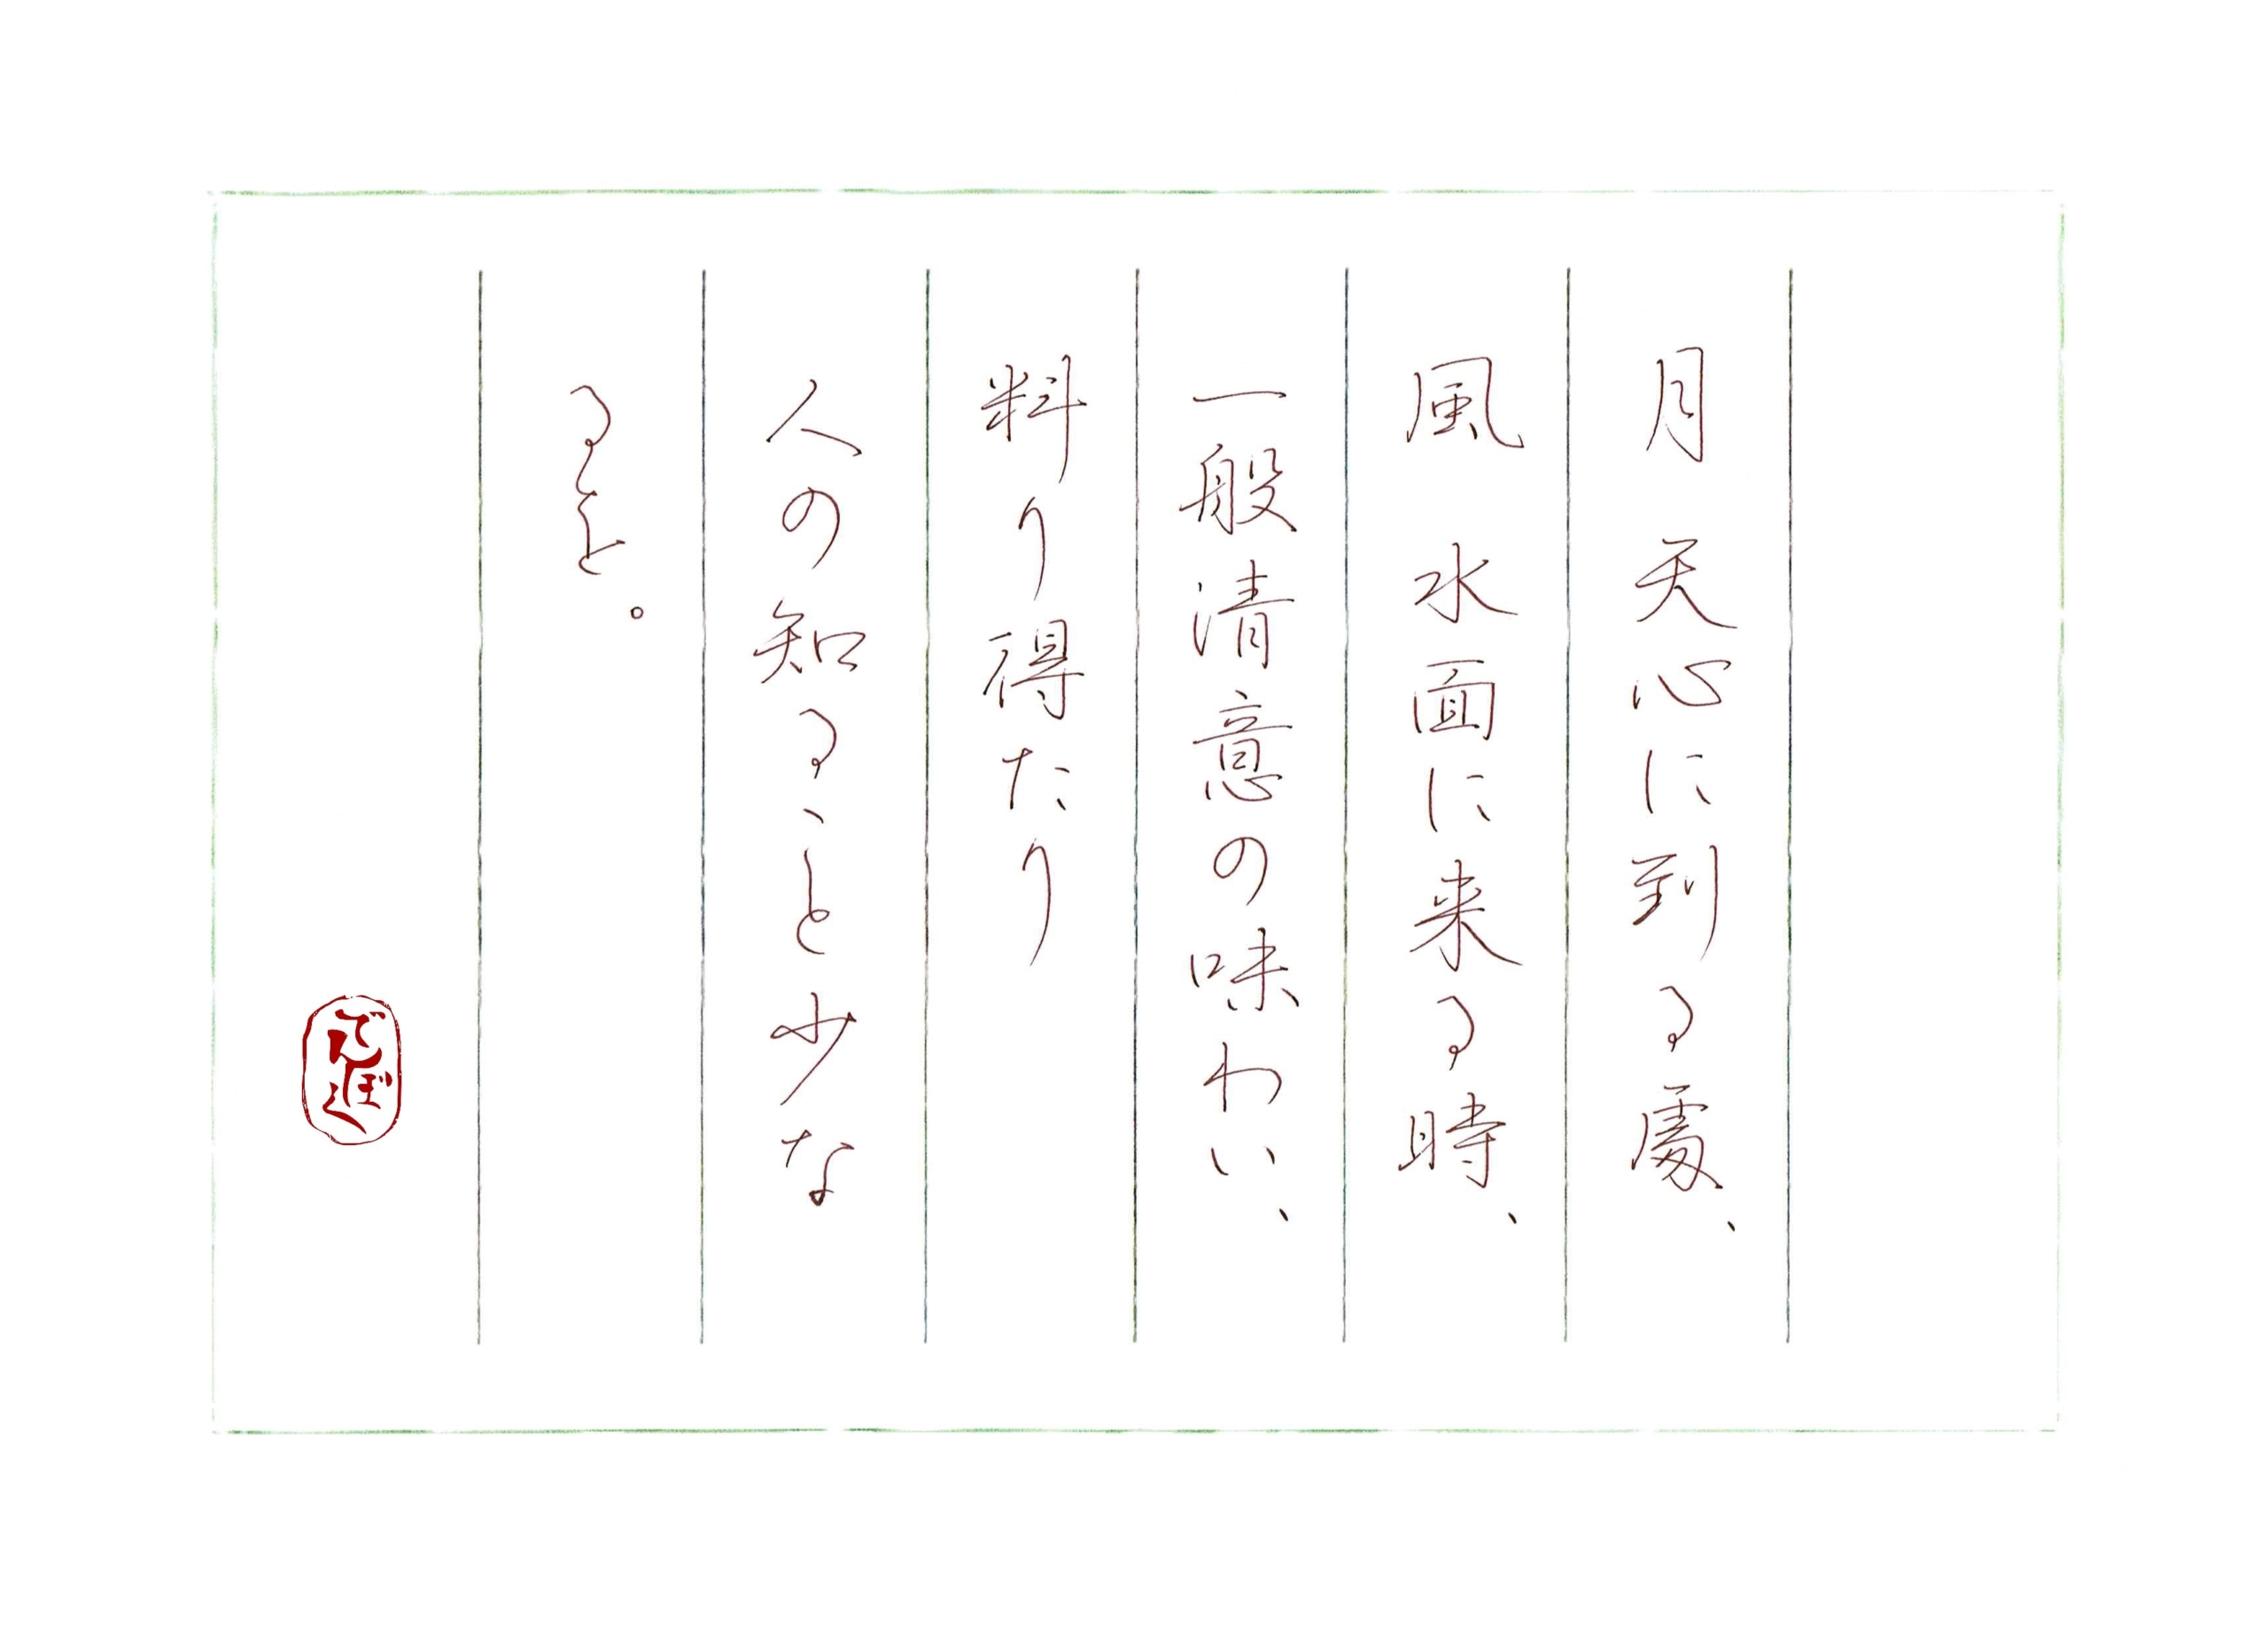 月 天心に到る處、
風 水面に来る時、
一般清意の味わい、
料り得たり
人の知ること少な
るを。
でんぼく